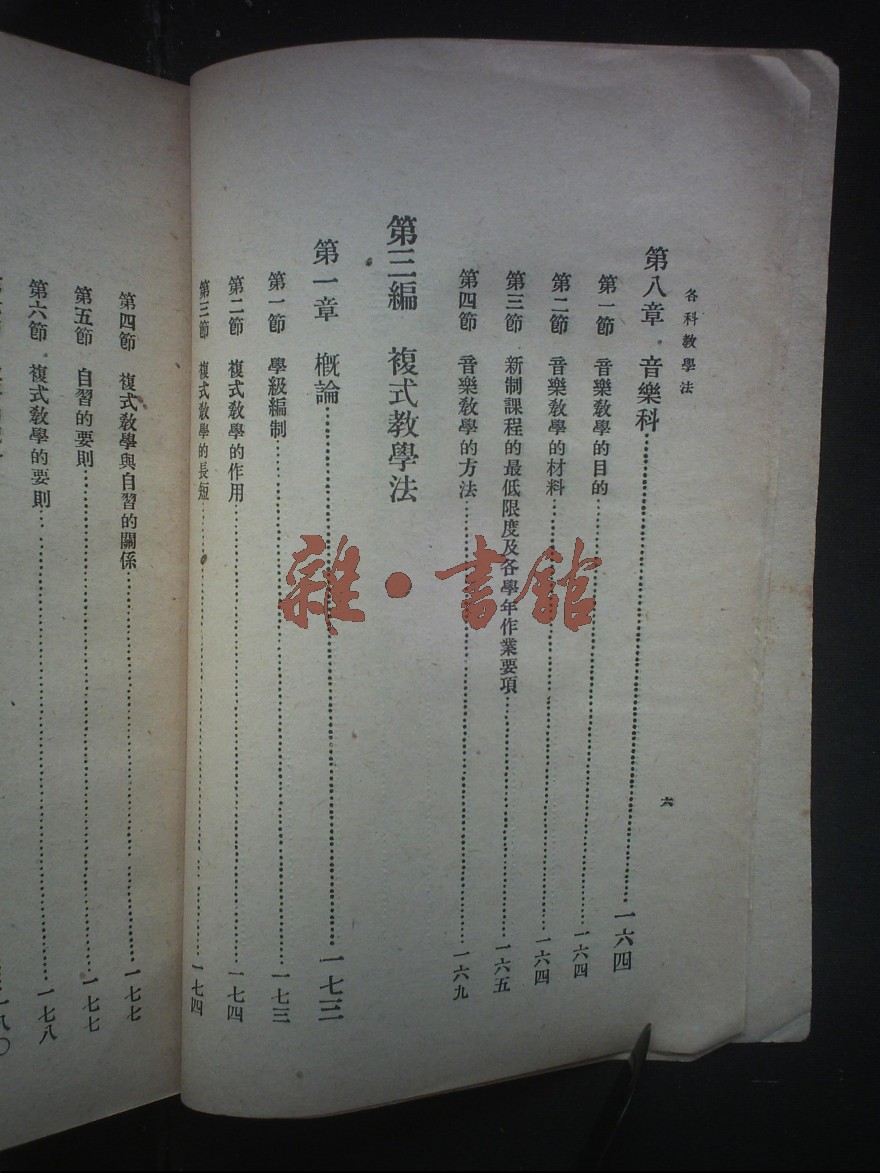 各科教學法
六
第八章 音樂科……一六四
第一節 音樂教學的目的……一六四
第二節 音樂教學的材料……一六四
第三節 新制課程的最低限度及各學年作業要項……一六五
第四節 音樂教學的方法……一六九
第三編 複式教學法
第一章 概論……一七三
第一節 學級編制……一七三
第二節 複式教學的作用……一七四
第三節 複式教學的長短……一七四
第四節 複式教學與自習的關係……一七七
第五節 自習的要則……一七七
第六節 複式教學的要則……一七八
一八〇
雜·書館